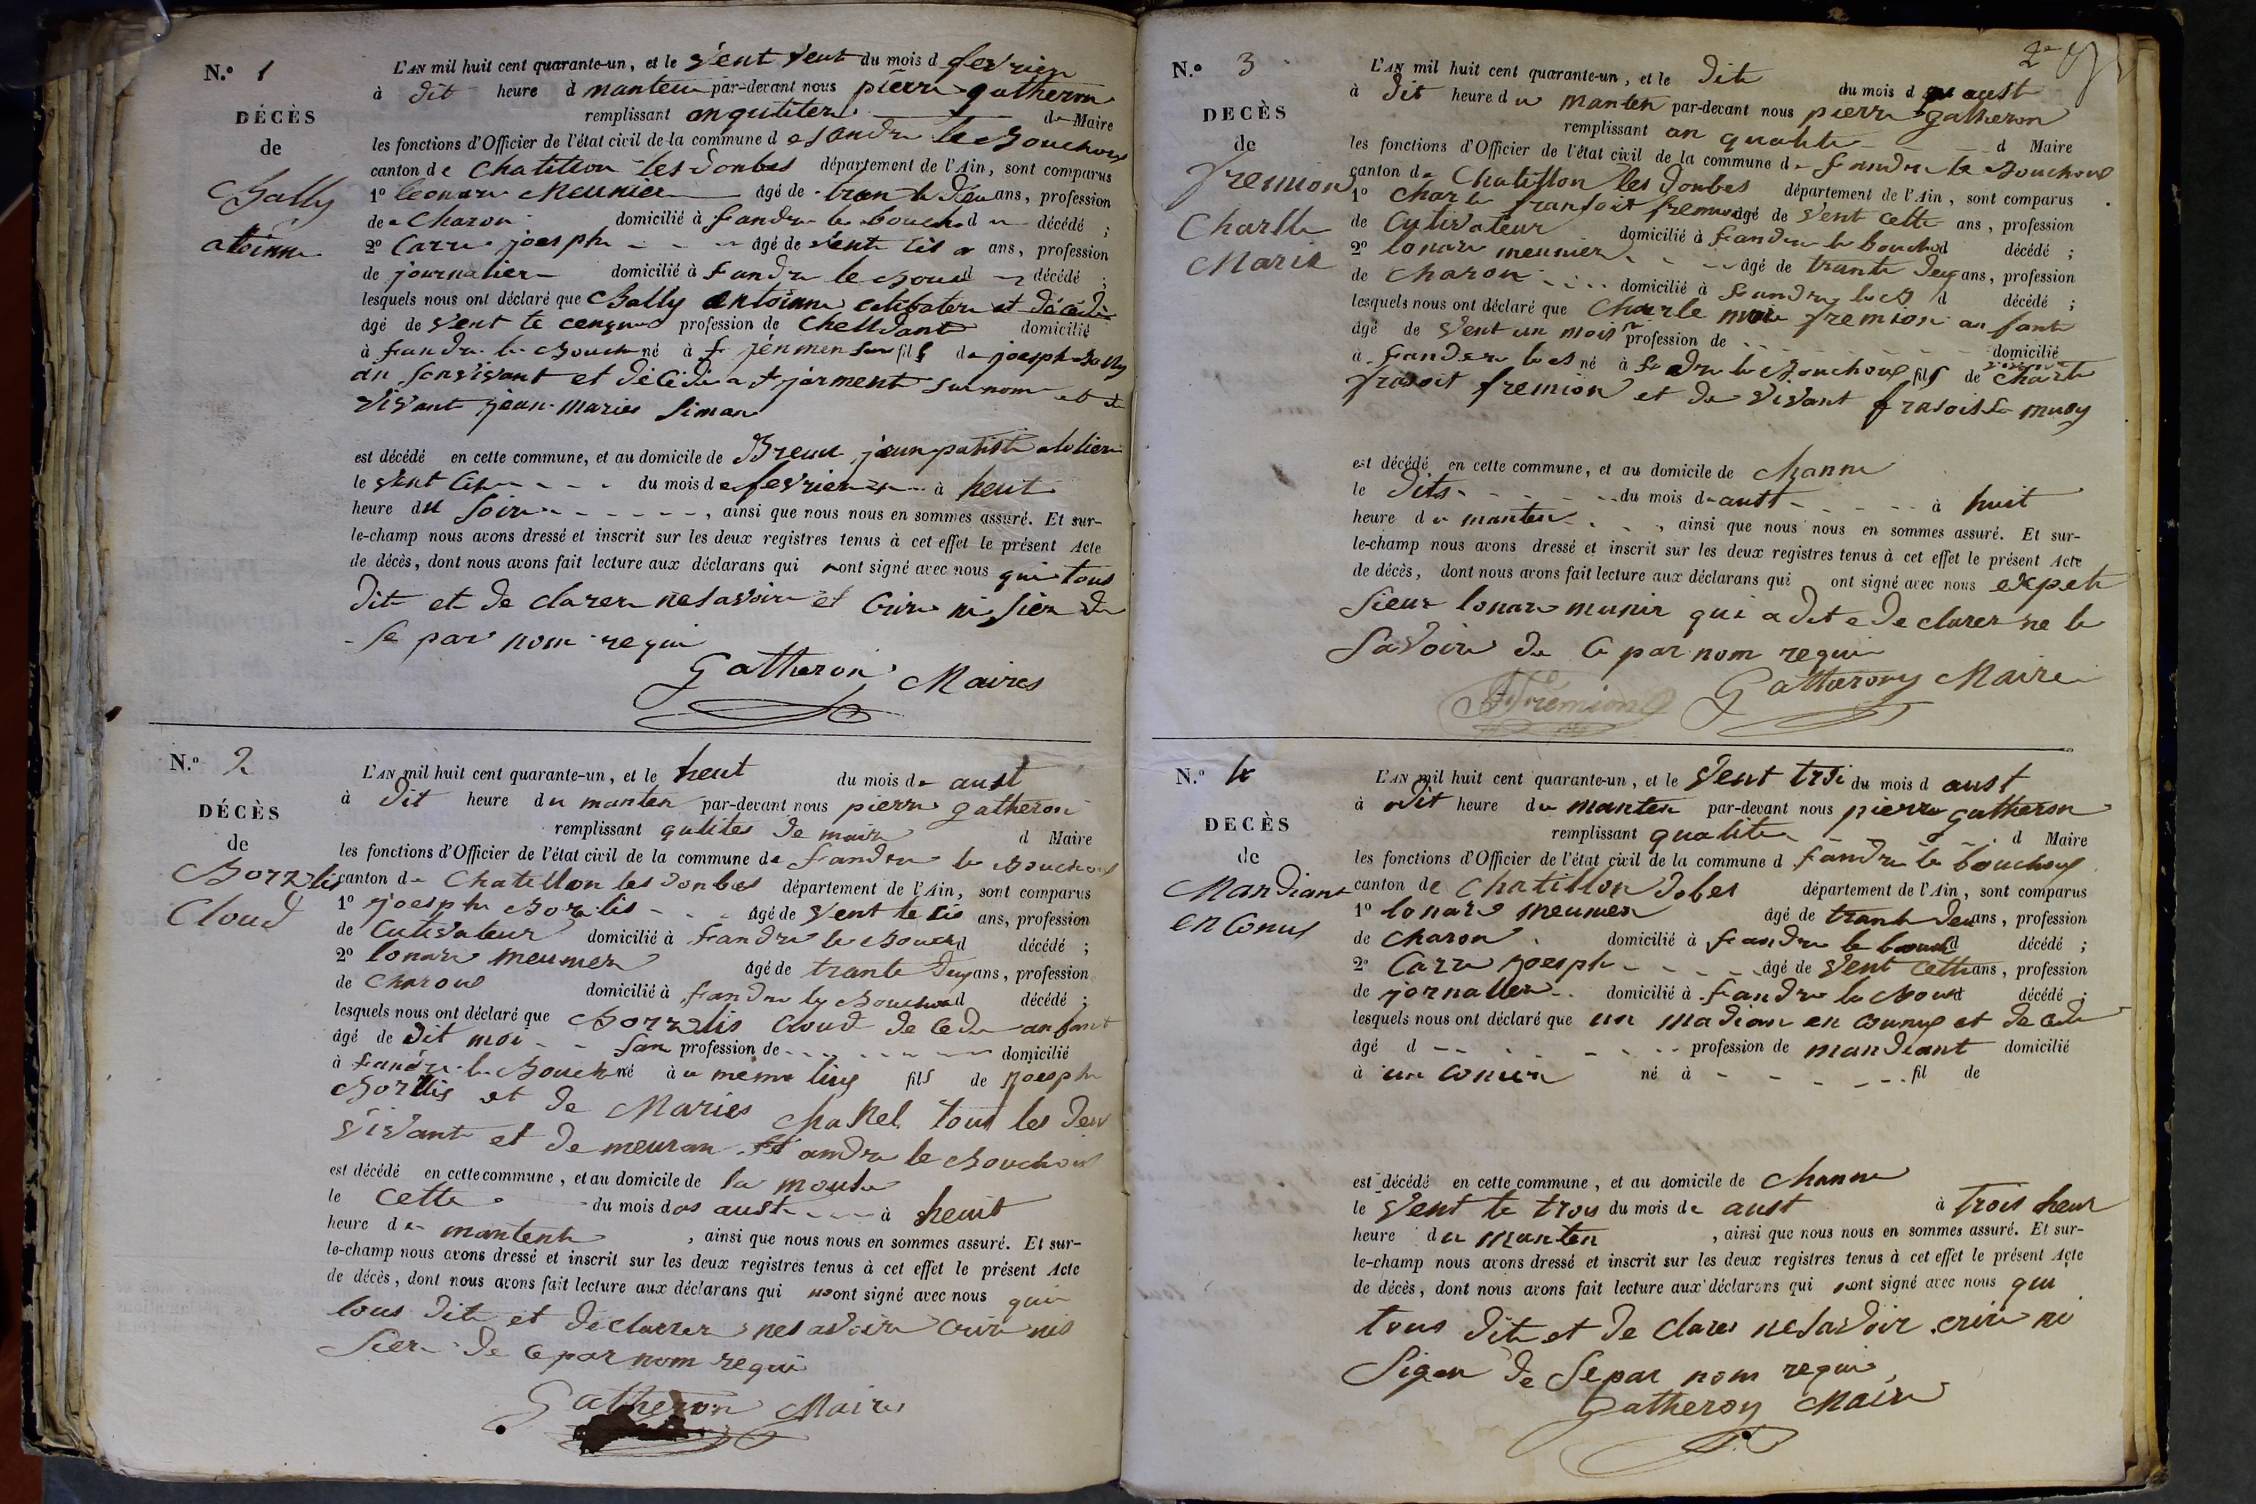 N.º 1
L'AN mil huit cent quarante-un, et le vent vent du mois d fevrier
à dit heure d manten par-devant nous pierre gatheron
remplissant de Maire
DÉCÈS
les fonctions d'Officier de l'état civil de la commune d esandre le Bouchoux
de
canton de Chatillon les donbes département de l'Ain, sont comparus
Bally
1º leonare Meunier âgé de trante deu ans, profession
de Charon domicilié à fandre le bouch d décédé ;
atoinne
2º Carre joesph âgé de vent sis ans, profession
de journalier domicilié à fandre le Boud décédé ;
lesquels nous ont déclaré que Bally antoinne celibatere et décédé
âgé de vent te cenq profession de domicilié
à fandre le Bouch né à fils de joesph Bally
an sonvivant et décédé a st jarment sur nom et de
vivante jean-Maries Siman
est décédé en cette commune, et au domicile de Breau jean patiste
le vent du mois de fevrier à heut
heure du Soire , ainsi que nous nous en sommes assuré. Et sur-
le-champ nous avons dressé et inscrit sur les deux registres tenus à cet effet le présent Acte
de décès, dont nous avons fait lecture aux déclarans qui nont signé avec nous qui tous
dit et de clarer nesavoire et Crire ni sier de
Se par nom requi
Gatheron Maires
N.º 2
L'AN mil huit cent quarante-un, et le heut du mois de aust
à dit heure du manten par-devant nous pierre gatheron
remplissant qalites de maire d Maire
DÉCÈS
les fonctions d'Officier de l'état civil de la commune de fandre le Bouchoux
de
canton de Chatellon les donbes département de l'Ain, sont comparus
Borrlis
Cloud
1º joesph Borlis âgé de vent te sis ans, profession
de Cutivateur domicilié à fandre le Bouch d décédé ;
2º lonare meunier âgé de trante deux ans, profession
de Charous domicilié à fandre le Bouchoud décédé ;
lesquels nous ont déclaré que Borrlis Cloud de cede anfant
âgé de dit moi San profession de domicilié
à fandre le Bouch né à u meme lius fils de joesph
Borllis et de Maries Chanel tous les deu
vivant et de meuran st andre le Bouchoux
est décédé en cette commune, et au domicile de la mousse
le cette du mois de aust à heuit
heure de mantent , ainsi que nous nous en sommes assuré. Et sur-
le-champ nous avons dressé et inscrit sur les deux registres tenus à cet effet le présent Acte
de décès, dont nous avons fait lecture aux déclarans qui nont signé avec nous qui
tous dit et declarer nesavoire crire nis
Sier de ce par nom requi
Gatheron Maires
N.º 3
L'AN mil huit cent quarante-un, et le dit du mois d aust
à dit heure du manten par-devant nous pierre gatheron
remplissant an qualite d Maire
DECÈS
les fonctions d'Officier de l'état civil de la commune de fandre le Bouchous
de
canton de Chatillon les donbes département de l'Ain, sont comparus
fremion
Charlle
Marie
1º Charle fransoit fremion âgé de vent cette ans, profession
de Cutivateur domicilié à fandre le bouchod décédé ;
2º lonare meunier âgé de trante deux ans, profession
de Charon domicilié à fandre le B d décédé ;
lesquels nous ont déclaré que Charle marie fremion anfant
âgé de vent un mois profession de domicilié
à fandre le B né à fandre le Bouchoux fils de vivant Charle
frasoit fremion et de vivant frasoise musy
est décédé en cette commune, et au domicile de Channe
le dits du mois de aust à huit
heure du manten , ainsi que nous nous en sommes assuré. Et sur-
le-champ nous avons dressé et inscrit sur les deux registres tenus à cet effet le présent Acte
de décès, dont nous avons fait lecture aux déclarans qui ont signé avec nous expete
Sieur lonare munir qui a dit e declarer ne le
Savoire de ce par nom requi
Fremion Gatherony Maire
N.º 4
L'AN mil huit cent quarante-un, et le vent troi du mois d aust
à dit heure du manten par-devant nous pierre gatheron
remplissant qualite d Maire
DECÈS
les fonctions d'Officier de l'état civil de la commune d fandre le bouchoux
de
canton de Chatillon dobes département de l'Ain, sont comparus
Mandiant
en Conus
1º lonare meunier âgé de trante deu ans, profession
de Charon domicilié à fandre le boud décédé ;
2º Carre joesph âgé de vent cette ans, profession
de jornallier domicilié à fandre le Boud décédé ;
lesquels nous ont déclaré que un madian en conus et decede
âgé d profession de mandiant domicilié
à un Conus né à fil de
est décédé en cette commune, et au domicile de Channe
le vent te trois du mois de aust à trois heur
heure du manten , ainsi que nous nous en sommes assuré. Et sur-
le-champ nous avons dressé et inscrit sur les deux registres tenus à cet effet le présent Acte
de décès, dont nous avons fait lecture aux déclarans qui nont signé avec nous qui
tous dit et de clares nesavoir crire ni
Sigen de Se par nom requi
Gatherony Maire